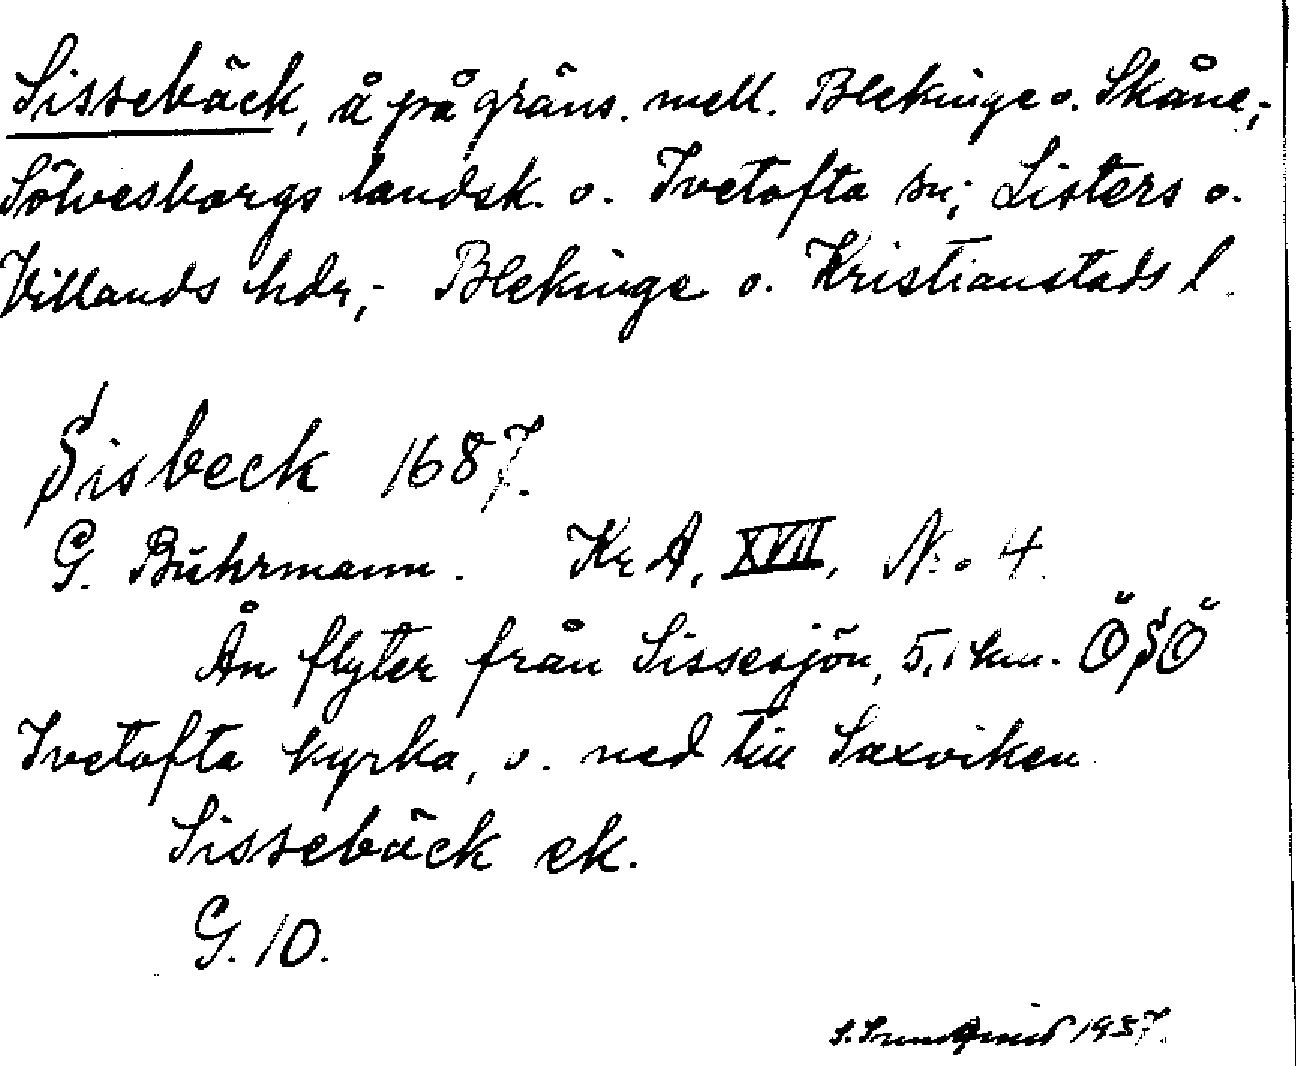 Sissebäck, å på gräns. mell. Blekinge o. Skåne,-
Sölvesborgs landsk. o. Ivetofta sn; Listers o.
Villands hdr,- Blekinge o. Kristianstads l.
Sisbeck 1687.
G. Buhrmann. Kr A, XVII, N:o 4.
Ån flyter från Sissesjön, 5,1 km. ÖSÖ
Ivetofta kyrka, o. ned till Saxviken
Sissebäck ek.
G. 10.
1937.